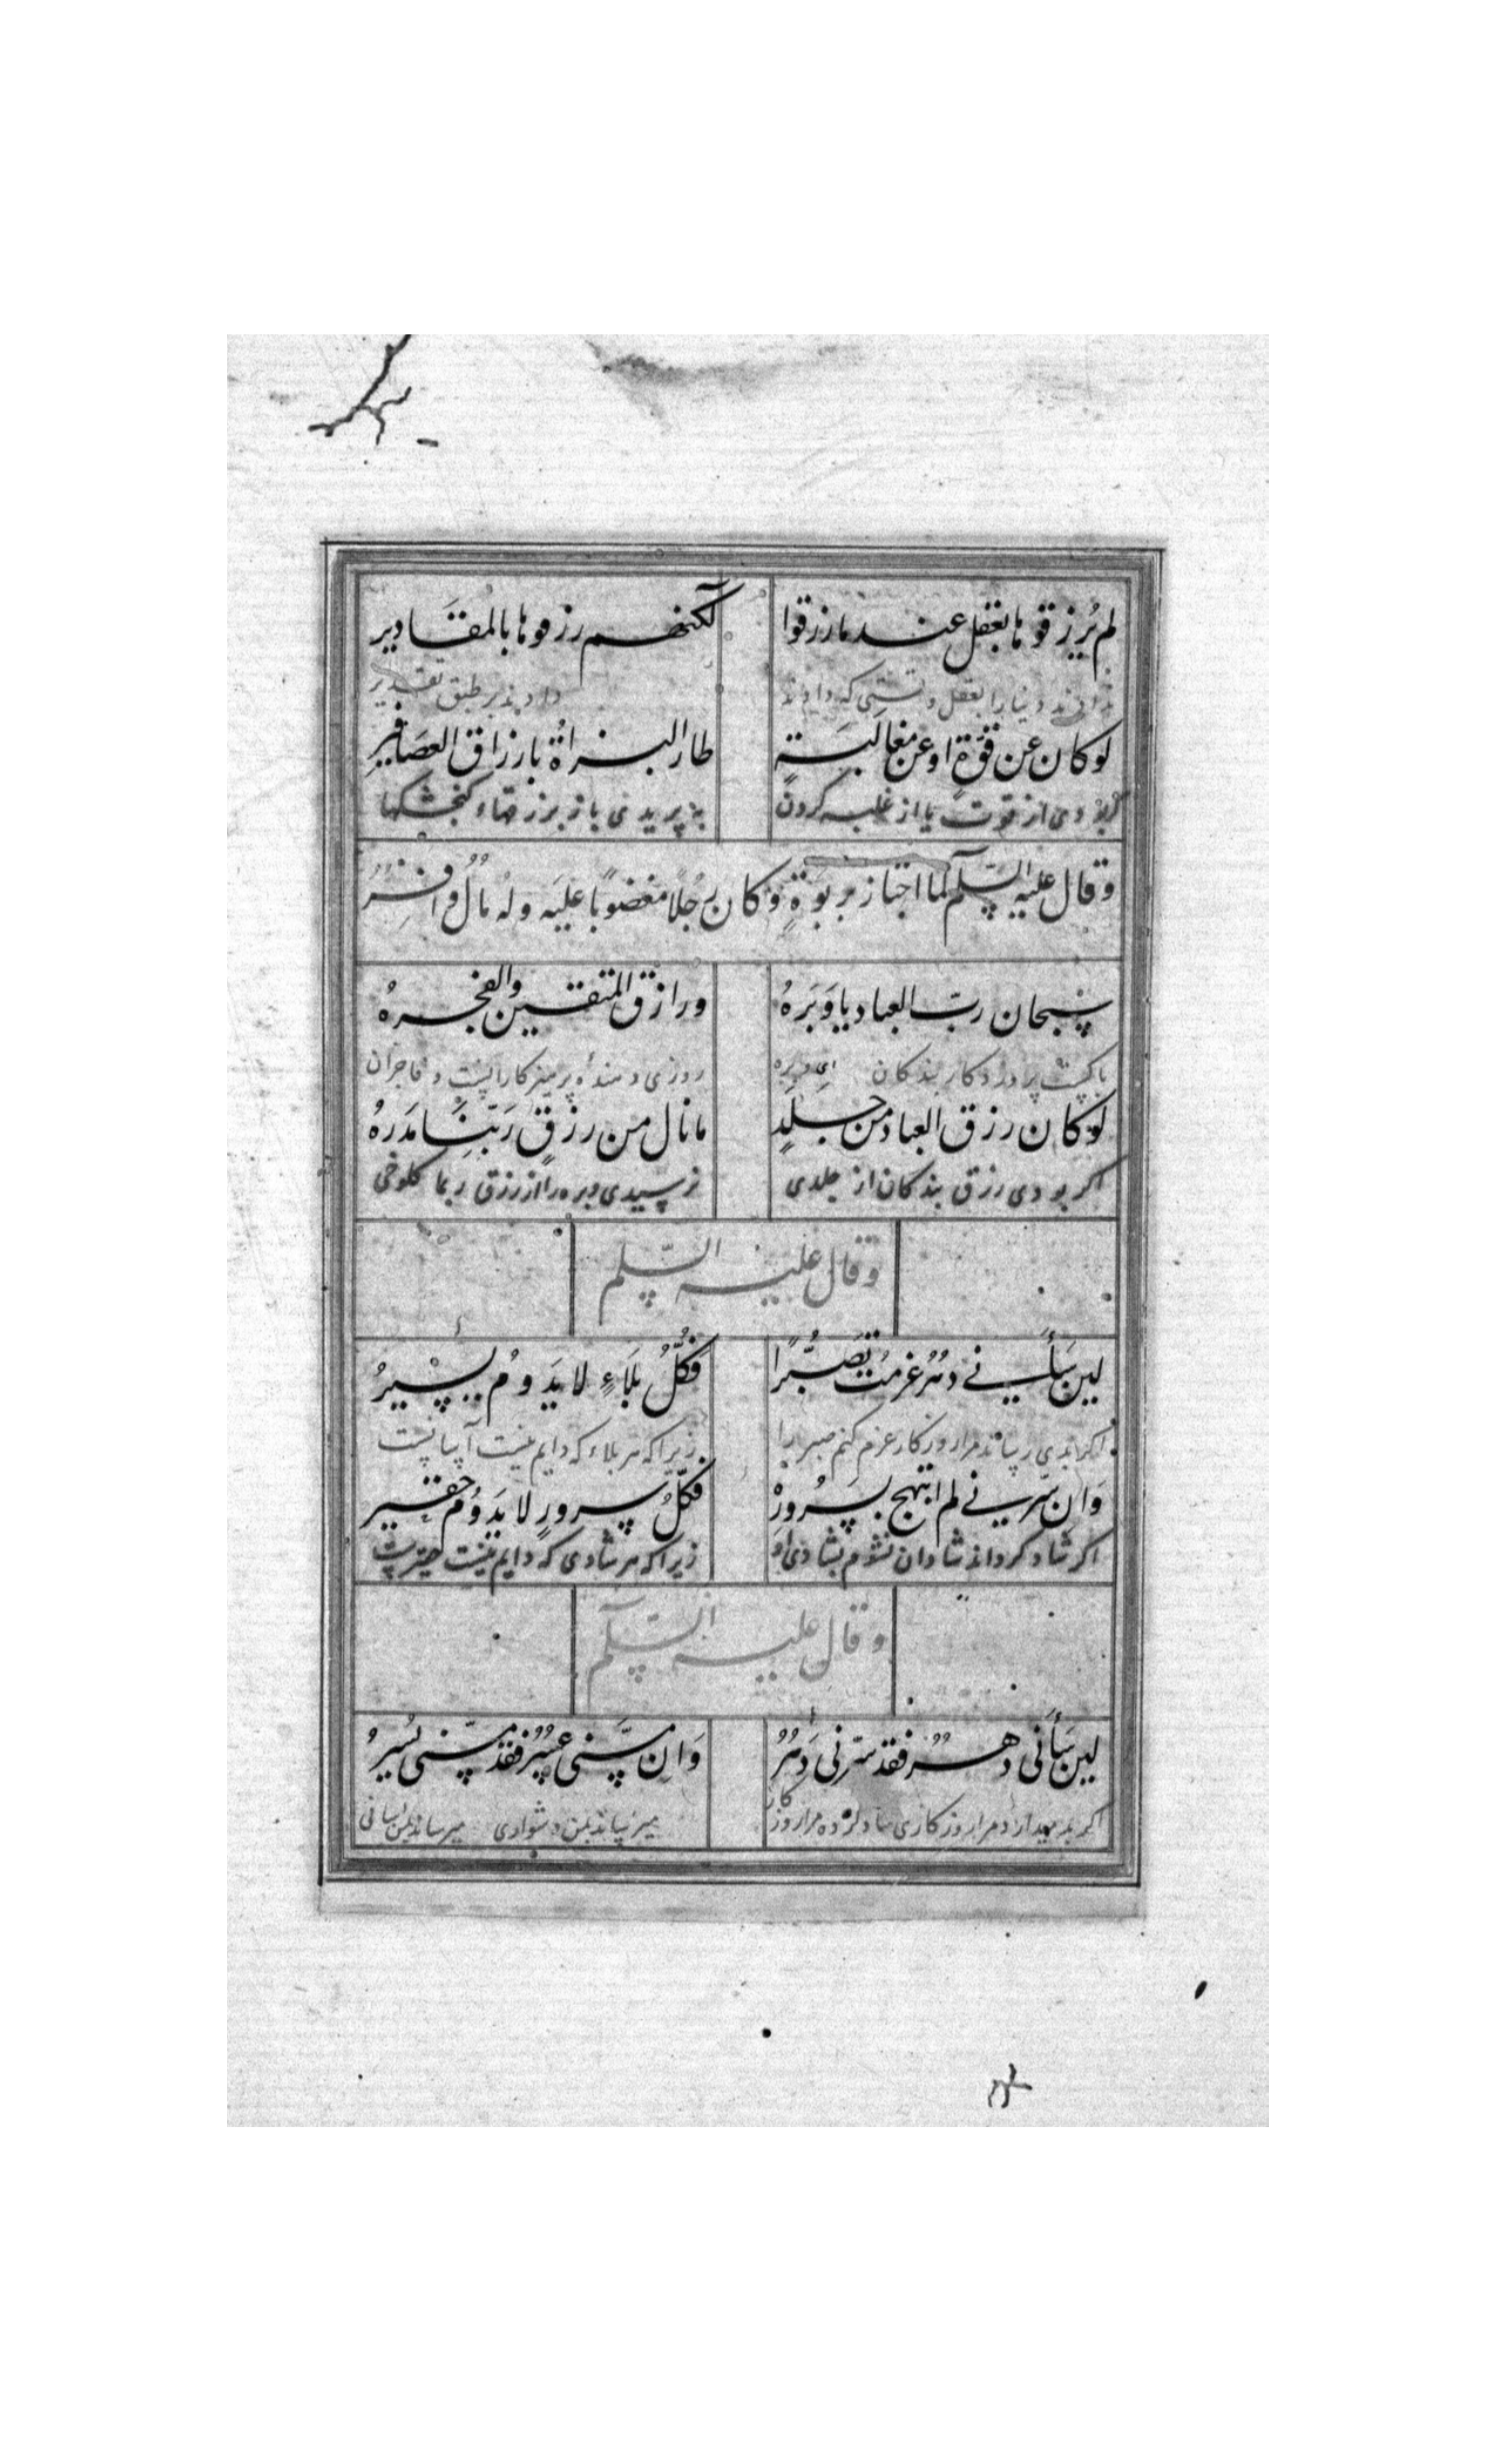 لم یُرزقوها بعقل عند ما رزقوا لکنهم رزقوها بالمقادیر
دنیا را بعقل و که دادند دادند بر طبق تقدیر
لو کان عن قوّةٍ او عن مغالبَةٍ طار البزاةُ بارزاق العصَافیرِ
گر بودی از قوت یا از غلبه کردن به پریدی باز برزقهاء کنجشکها
و قال علیه السّلم لما اجتاز بربوَةٍ و کان رجُلًا مغضوبًا علیَه و له مالٌ وافرٌ
سُبحان ربّ العباد یا وَبَرهُ و رازق المتقین والفجرهُ
پاکست پروردکار بندکان ای وبره روزی دهندهٔ پرهیزکارانست و فاجران
لو کان رزق العباد من جلَدٍ ما نال من رزقِ رَبّنَا مَدَرهُ
اکر بودی رزق بندکان از جلدی نرسیدی وبره را از رزق ربما کلوخی
و قال علیه السّلم
لین سَأنی دهرٌ عزمتُ تصَبُّرًا فکُلُّ بلَاءٍ لا یَدومُ یسِیرُ
اکر بدی رساند مرا روزکار عزم کنم صبر را زیرا که هر بلاء که دایم نیست آسانست
وَان سَرّنی لم ابتهج بسُرورِهْ فکُلُّ سرورٍ لا یَدوُم حقیر
اکر شاد کرداند شادان نشوم بشادی او زیرا که هر شادی که دایم نیست حقیرست
و قال علیه السّلم
لین سَأَنی دهرٌ فقد سَرّنی دَهرٌ وَان مسَّنی عسرٌ فقد مسّنی یُسیرُ
اکر بد میدارد مرا روزکاری شاد کرده مرا روزکار میرساند بمن دشواری میرساند بمن اسانی